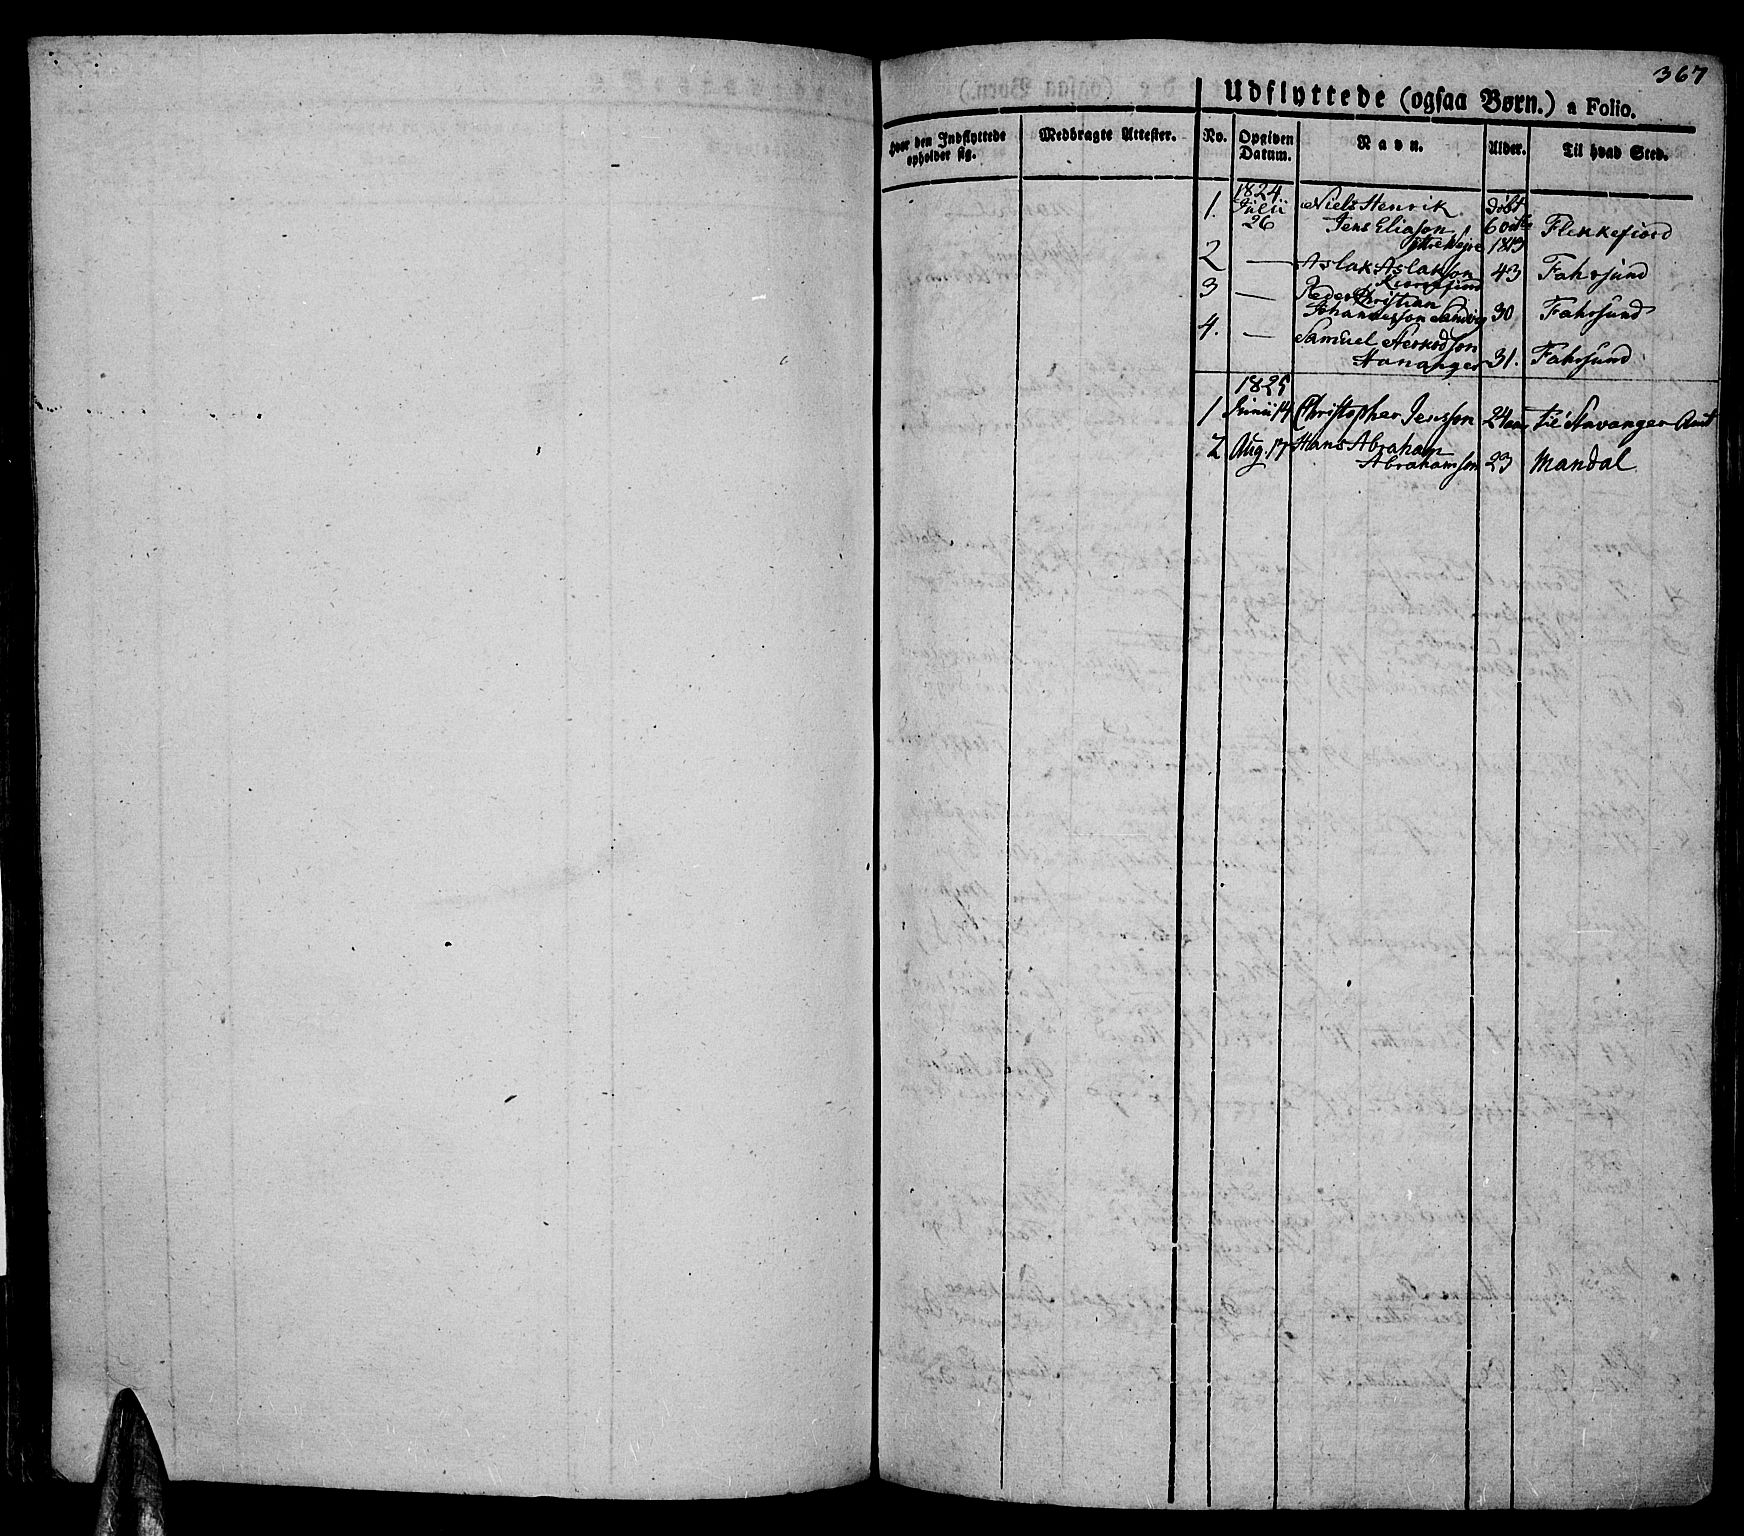 367
Udflyttede (ogsaa Børn.) a Folio.
Hvor den Indflyttede opholder sig.
Medbragte Attester.
No.
Opgiven Datum.
Navn.
Alder.
Til hvad Sted.
1824
1. Julii 26 Niels Henrik døbt
Jens Eliason 6 Flekkefiord
1813
2 — Aslak Aslakson 43 Fahrsund
3 — Peder Christian
Johannesson Sandvig 30 Fahrsund
4. — Samuel
Hananger 31. Fahrsund
1825
1 Junii 14 Christopher Jensson 24 aar til Stavanger Amt
2 Aug. 17 Hans Abraham
Abrahamson 23 Mandal